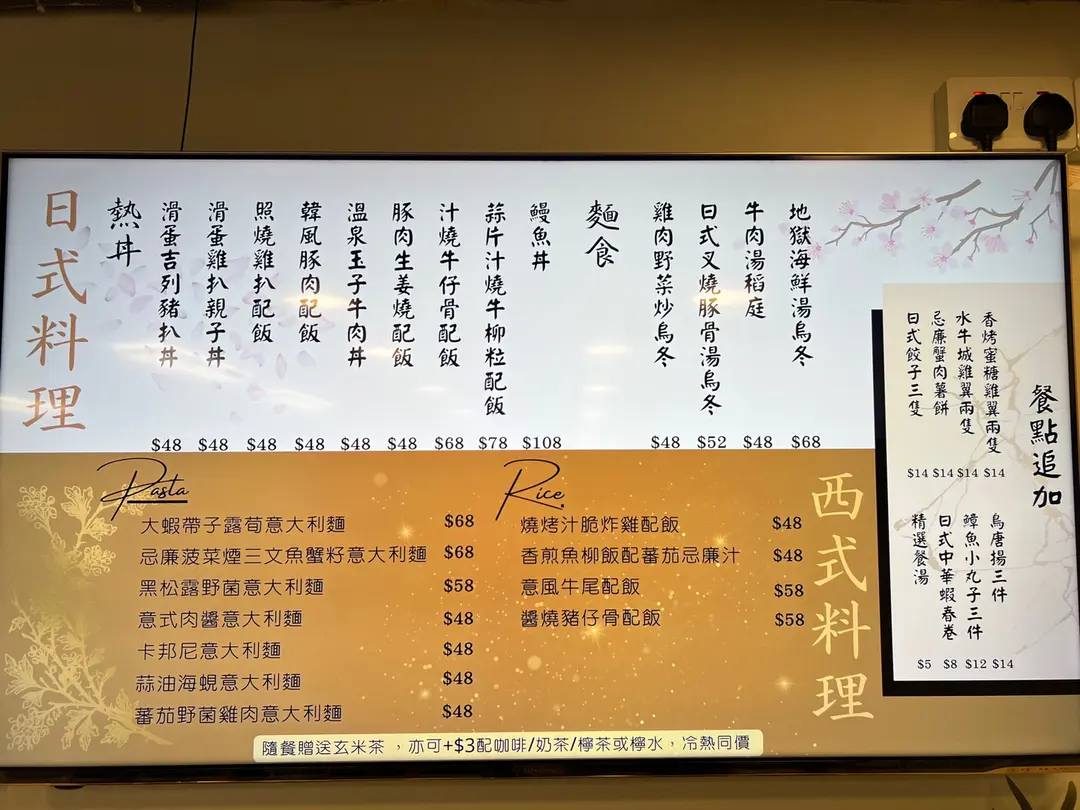 日式料理
熱丼
滑蛋吉列豬扒丼 $48
滑蛋雞扒親子丼 $48
照燒雞扒配飯 $48
韓風豚肉配飯 $48
溫泉玉子牛肉丼 $48
豚肉生姜燒配飯 $48
汁燒牛仔骨配飯 $68
蒜片汁燒牛柳粒配飯 $78
鰻魚丼 $108
麵食
雞肉野菜炒烏冬 $48
日式叉燒豚骨湯烏冬 $52
牛肉湯稻庭 $48
地獄海鮮湯烏冬 $68
餐點追加
香烤蜜糖雞翼兩隻 $14
水牛城雞翼兩隻 $14
忌廉蟹肉薯餅 $14
日式餃子三隻 $14
烏唐揚三件 $14
鱆魚小丸子三件 $12
日式中華蝦春卷 $8
精選餐湯 $5
西式料理
Pasta
大蝦帶子露荀意大利麵 $68
忌廉菠菜煙三文魚蟹籽意大利麵 $68
黑松露野菌意大利麵 $58
意式肉醬意大利麵 $48
卡邦尼意大利麵 $48
蒜油海蜆意大利麵 $48
蕃茄野菌雞肉意大利麵 $48
Rice
燒烤汁脆炸雞配飯 $48
香煎魚柳飯配蕃茄忌廉汁 $48
意風牛尾配飯 $58
醬燒豬仔骨配飯 $58
隨餐贈送玄米茶 ，亦可+$3配咖啡/奶茶/檸茶或檸水，冷熱同價